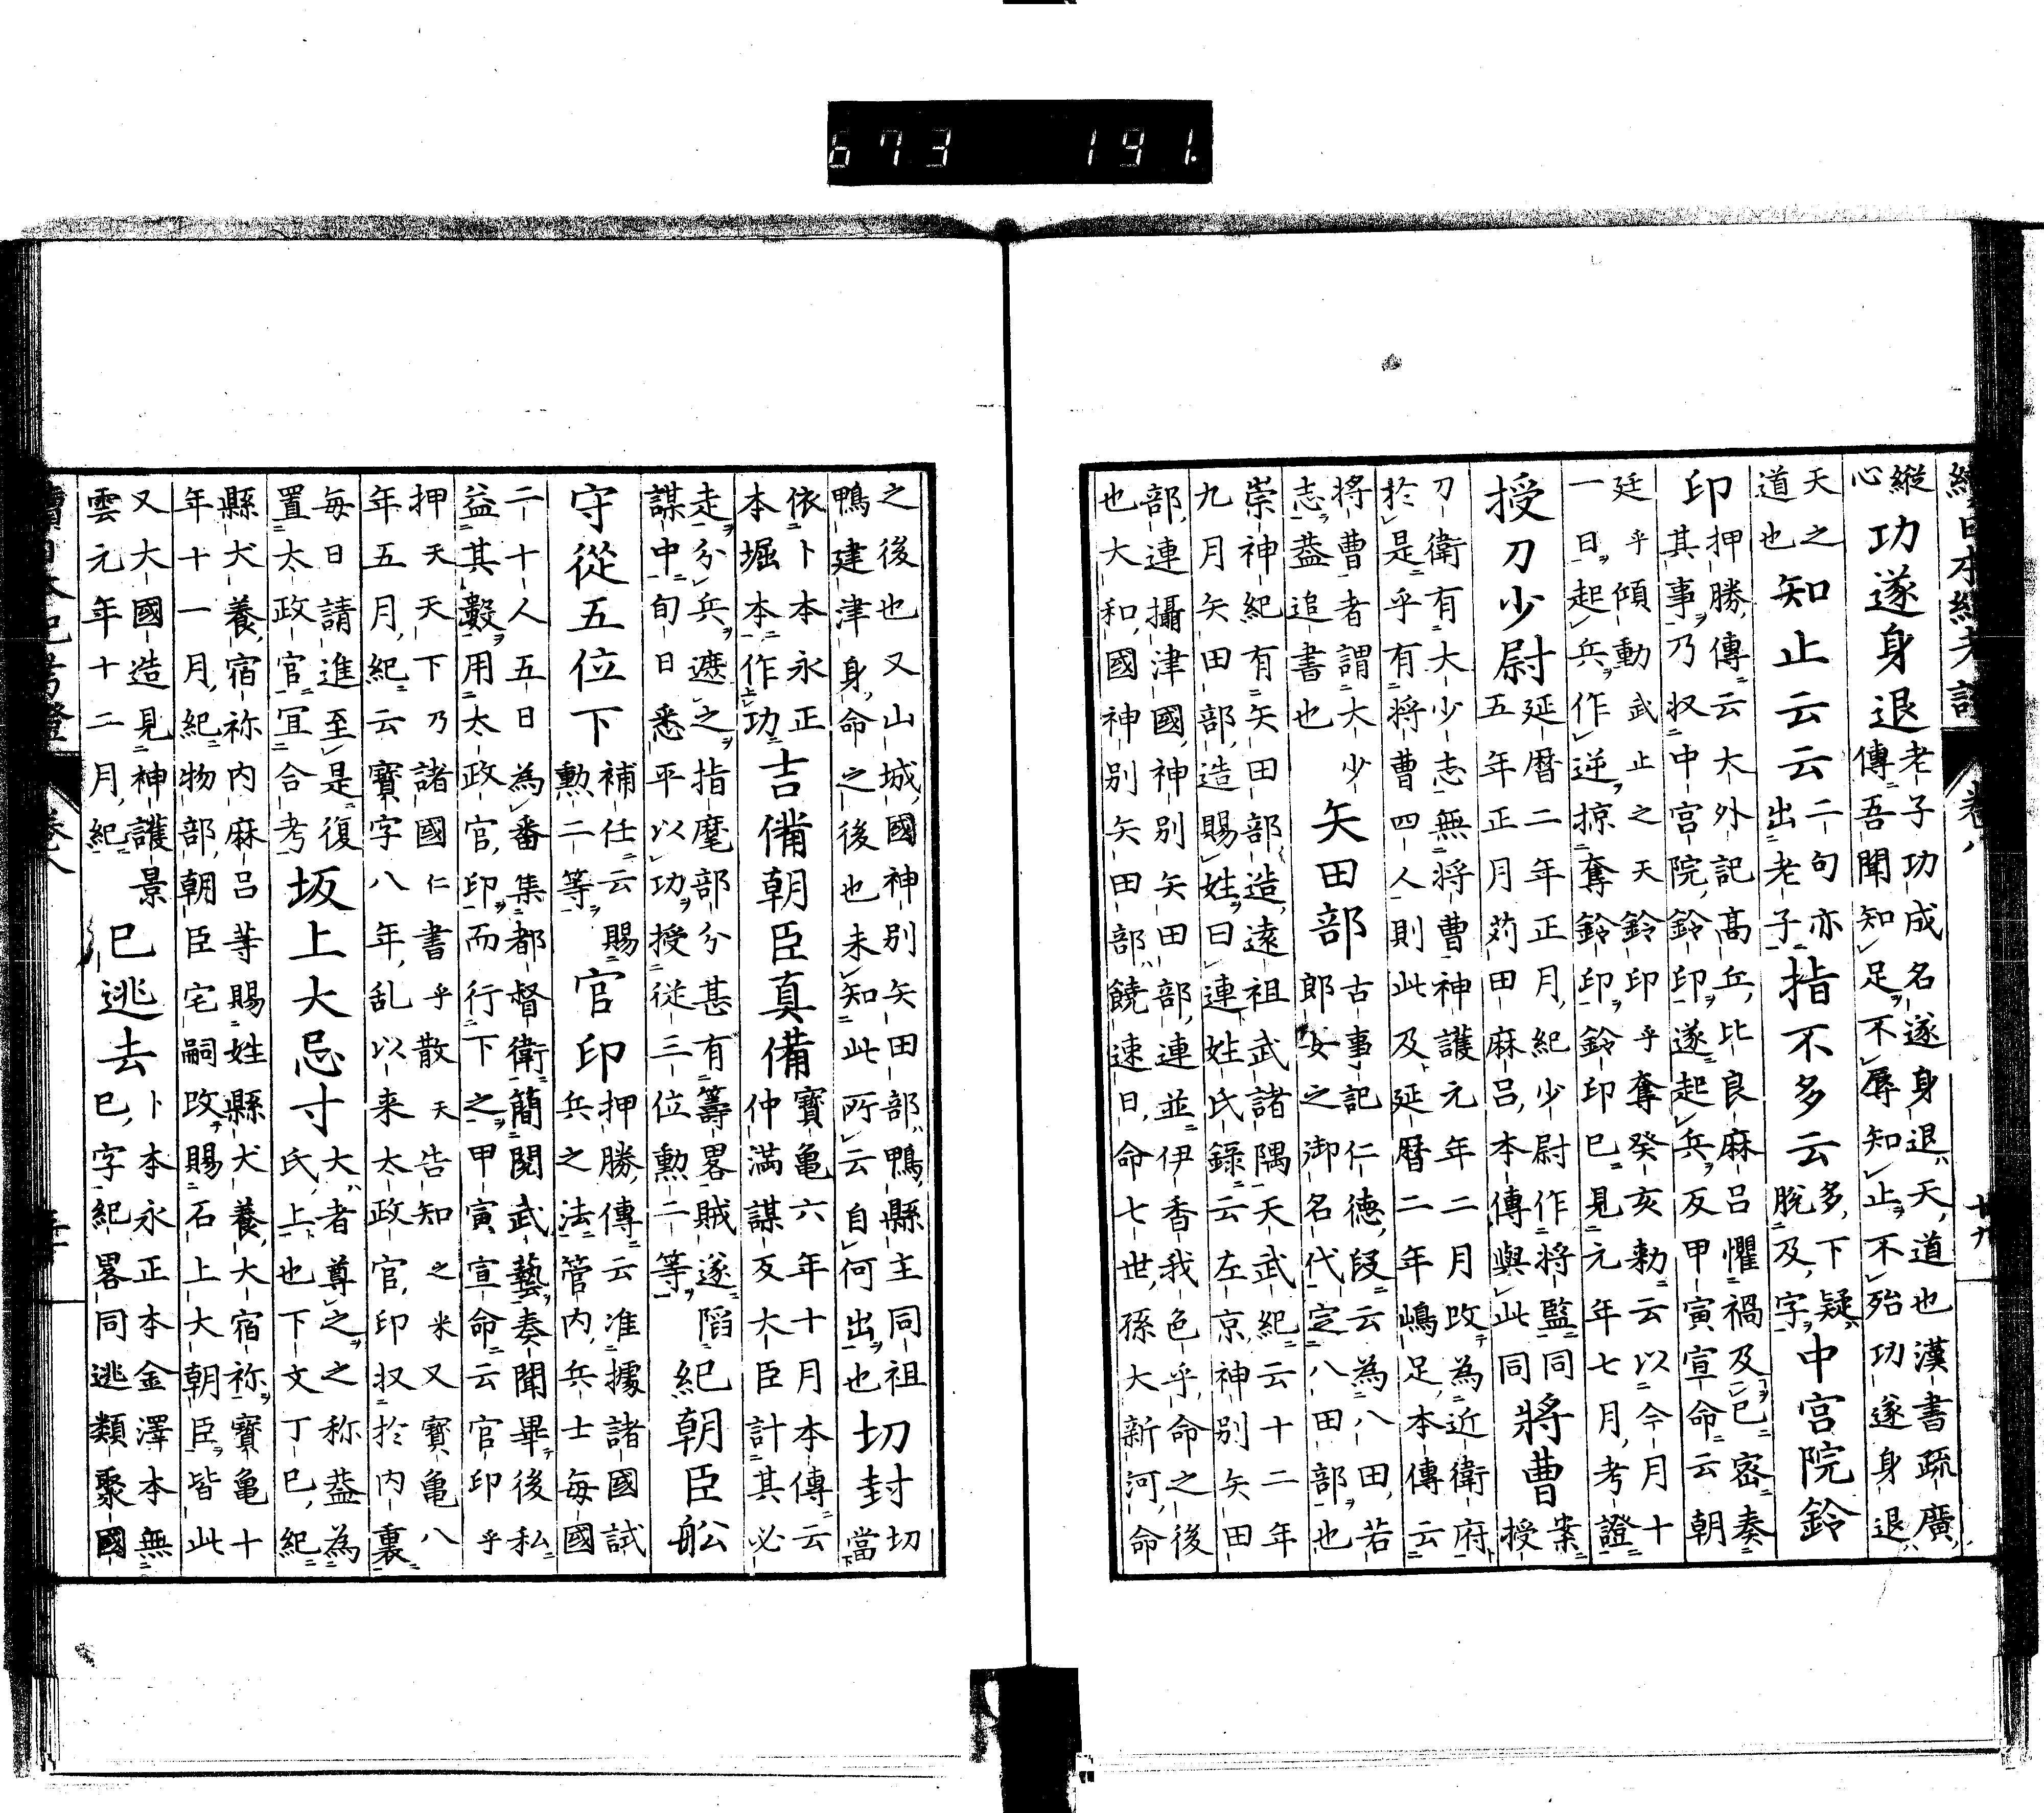 673 191.
續日本紀考證 卷八 廿九
縱心
功遂身退
老子功成名遂身退天道也漢書疏廣
傳吾聞知足不辱知止不殆功遂身退
天之
道也
知止云云
二句亦
出老子
指不多云
多下疑
脫及字
中宮院鈴
印
押勝傳云大外記高丘比良麻呂懼禍及已密奏
其事乃収中宮院鈴印遂起兵反甲寅宣命云朝
廷乎傾動武止之天鈴印乎奪癸亥勅云以今月十
一日起兵作逆掠奪鈴印鈴印巳見元年七月考證
授刀少尉
延暦二年正月紀少尉作將監同
五年正月苅田麻呂本傳與此同
將曹
案授
刀衛有大少志無將曹神護元年二月改為近衛府
於是乎有將曹四人則此及延暦二年嶋足本傳云
將曹者謂大少
志葢追書也
矢田部
古事記仁德段云為八田若
郎女之御名代定八田部也
崇神紀有矢田部造遠祖武諸隅天武紀云十二年
九月矢田部造賜姓曰連姓氏錄云左京神別矢田
部連攝津國神別矢田部連並伊香我色乎命之後
也大和國神別矢田部饒速日命七世孫大新河命
之後也又山城國神別矢田部鴨縣主同祖
鴨建津身命之後也未知此所云自何出也
切封
切當
依卜本永正
本堀本作功
吉備朝臣真備
寶亀六年十月本傳云
仲満謀反大臣計其必
走分兵遮之指麾部分甚有籌畧賊遂䧟
謀中旬日悉平以功授從三位勲二等
紀朝臣舩
守從五位下
補任云賜
勲二等
官印
押勝傳云准據諸國試
兵之法管内兵士每國
二十人五日為番集都督衛簡閲武藝奏聞畢後私
益其數用太政官印而行下之甲寅宣命云官印乎
押天天下乃諸國仁書乎散天告知之米又寶亀八
年五月紀云寶字八年乱以来太政官印収於内裏
每日請進至是復
置太政官宜合考
坂上大忌寸
大者尊之之称葢為
氏上也下文丁巳紀
縣犬養宿祢内麻呂等賜姓縣犬養大宿祢寶亀十
年十一月紀物部朝臣宅嗣改賜石上大朝臣皆此
又大國造見神護景
雲元年十二月紀
巳逃去
卜本永正本金澤本無
巳字紀畧同逃類聚國
續日本紀考證 卷八